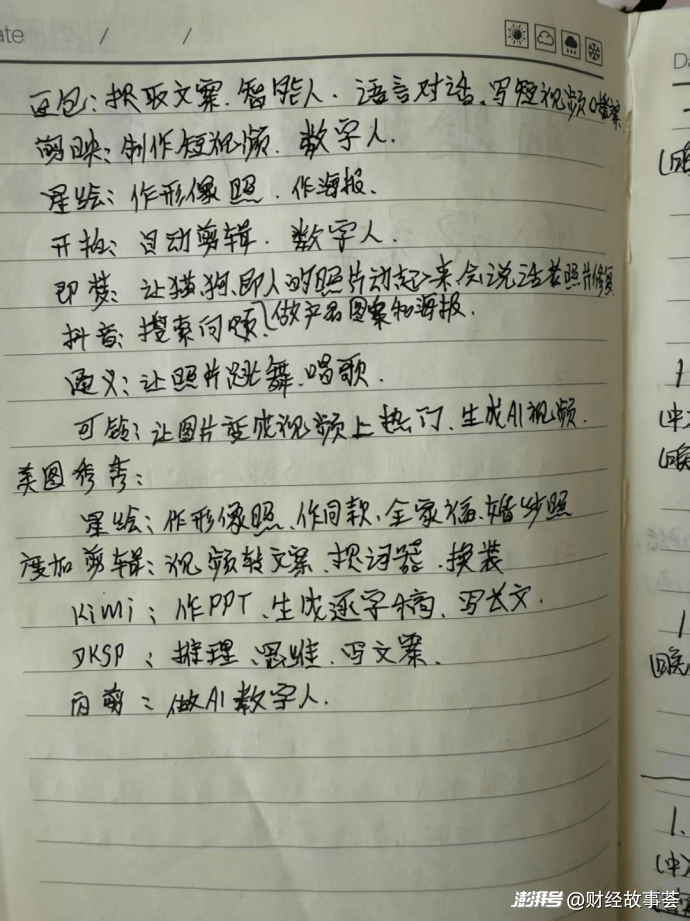 ate / /
豆包：提取文案、智能人、语言对话、写短视频口播案
剪映：制作短视频、数字人.
星绘：作形像照、作海报.
开拍：自动剪辑、数字人.
即梦：让猫、狗、即人的照片动起来、会说话、老照片修复
抖音：搜索问题、做产品图案和海报.
通义：让照片跳舞、唱歌.
可铃：让图片变成视频上热门、生成AI视频.
美图秀秀：
星绘：作形像照、作同款、全家福、婚纱照
度加剪辑：视频转文案、提词器、换装
KiMi：作PPT、生成逐字稿、写长文.
DKSP：推理、思维、写文案.
百剪：做AI数字人.
Da
1
(中)
1
1.
(中)
澎湃号 @财经故事荟